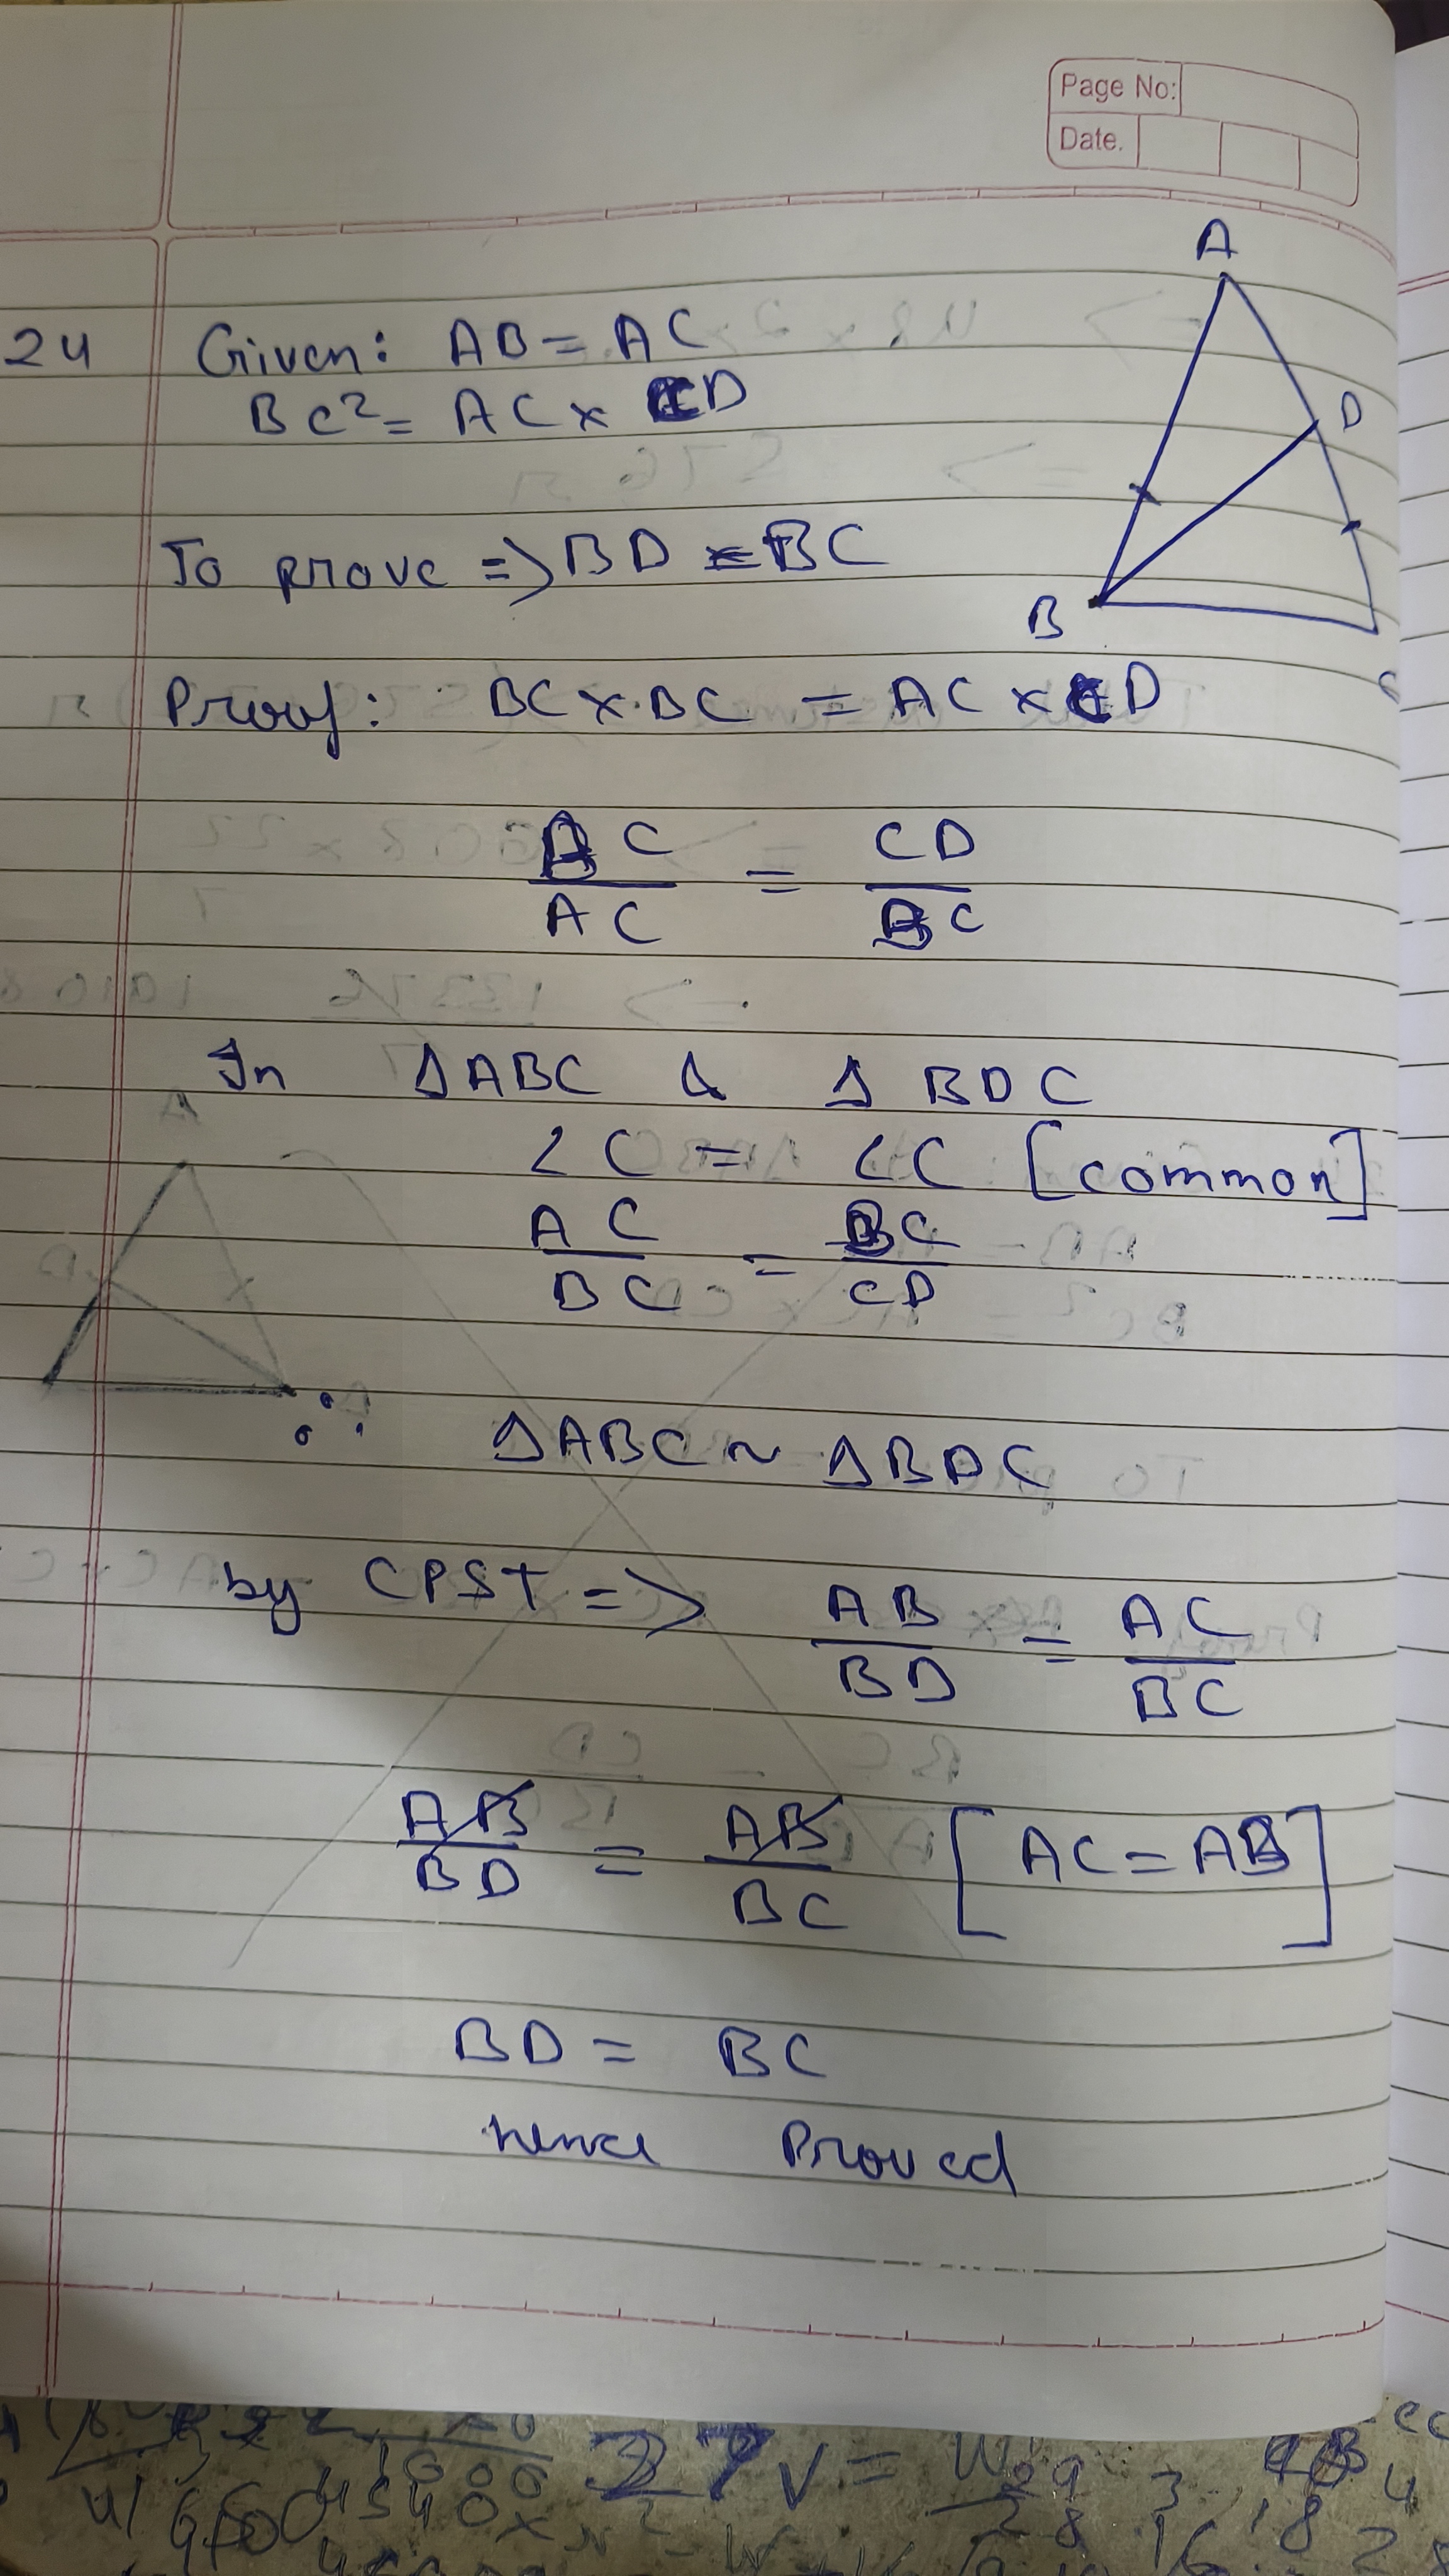 Page No:
Date.
A
24 Given: AB = AC
BC² = AC × CD
D
To prove => BD = BC
B
C
Proof: BC × BC = AC × CD
BC/AC = CD/BC
In ΔABC & Δ BDC
∠C = ∠C [common]
AC/BC = BC/CD
∴ ΔABC ~ ΔBDC
by CPST => AB/BD = AC/BC
AB/BD = AB/BC [AC = AB]
BD = BC
hence Proved